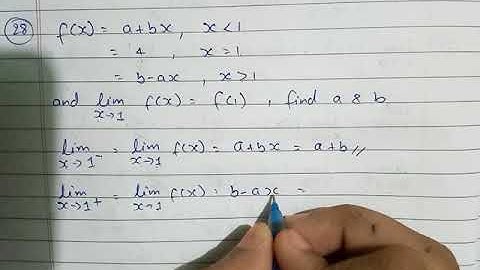 28 f(x) = a+bx, x<1
= 4, x=1
= b-ax, x>1
and lim x→1 f(x) = f(1), find a & b
lim x→1⁻ = lim x→1 f(x) = a+bx = a+b//
lim x→1+ = lim x→1 f(x) = b-ax =